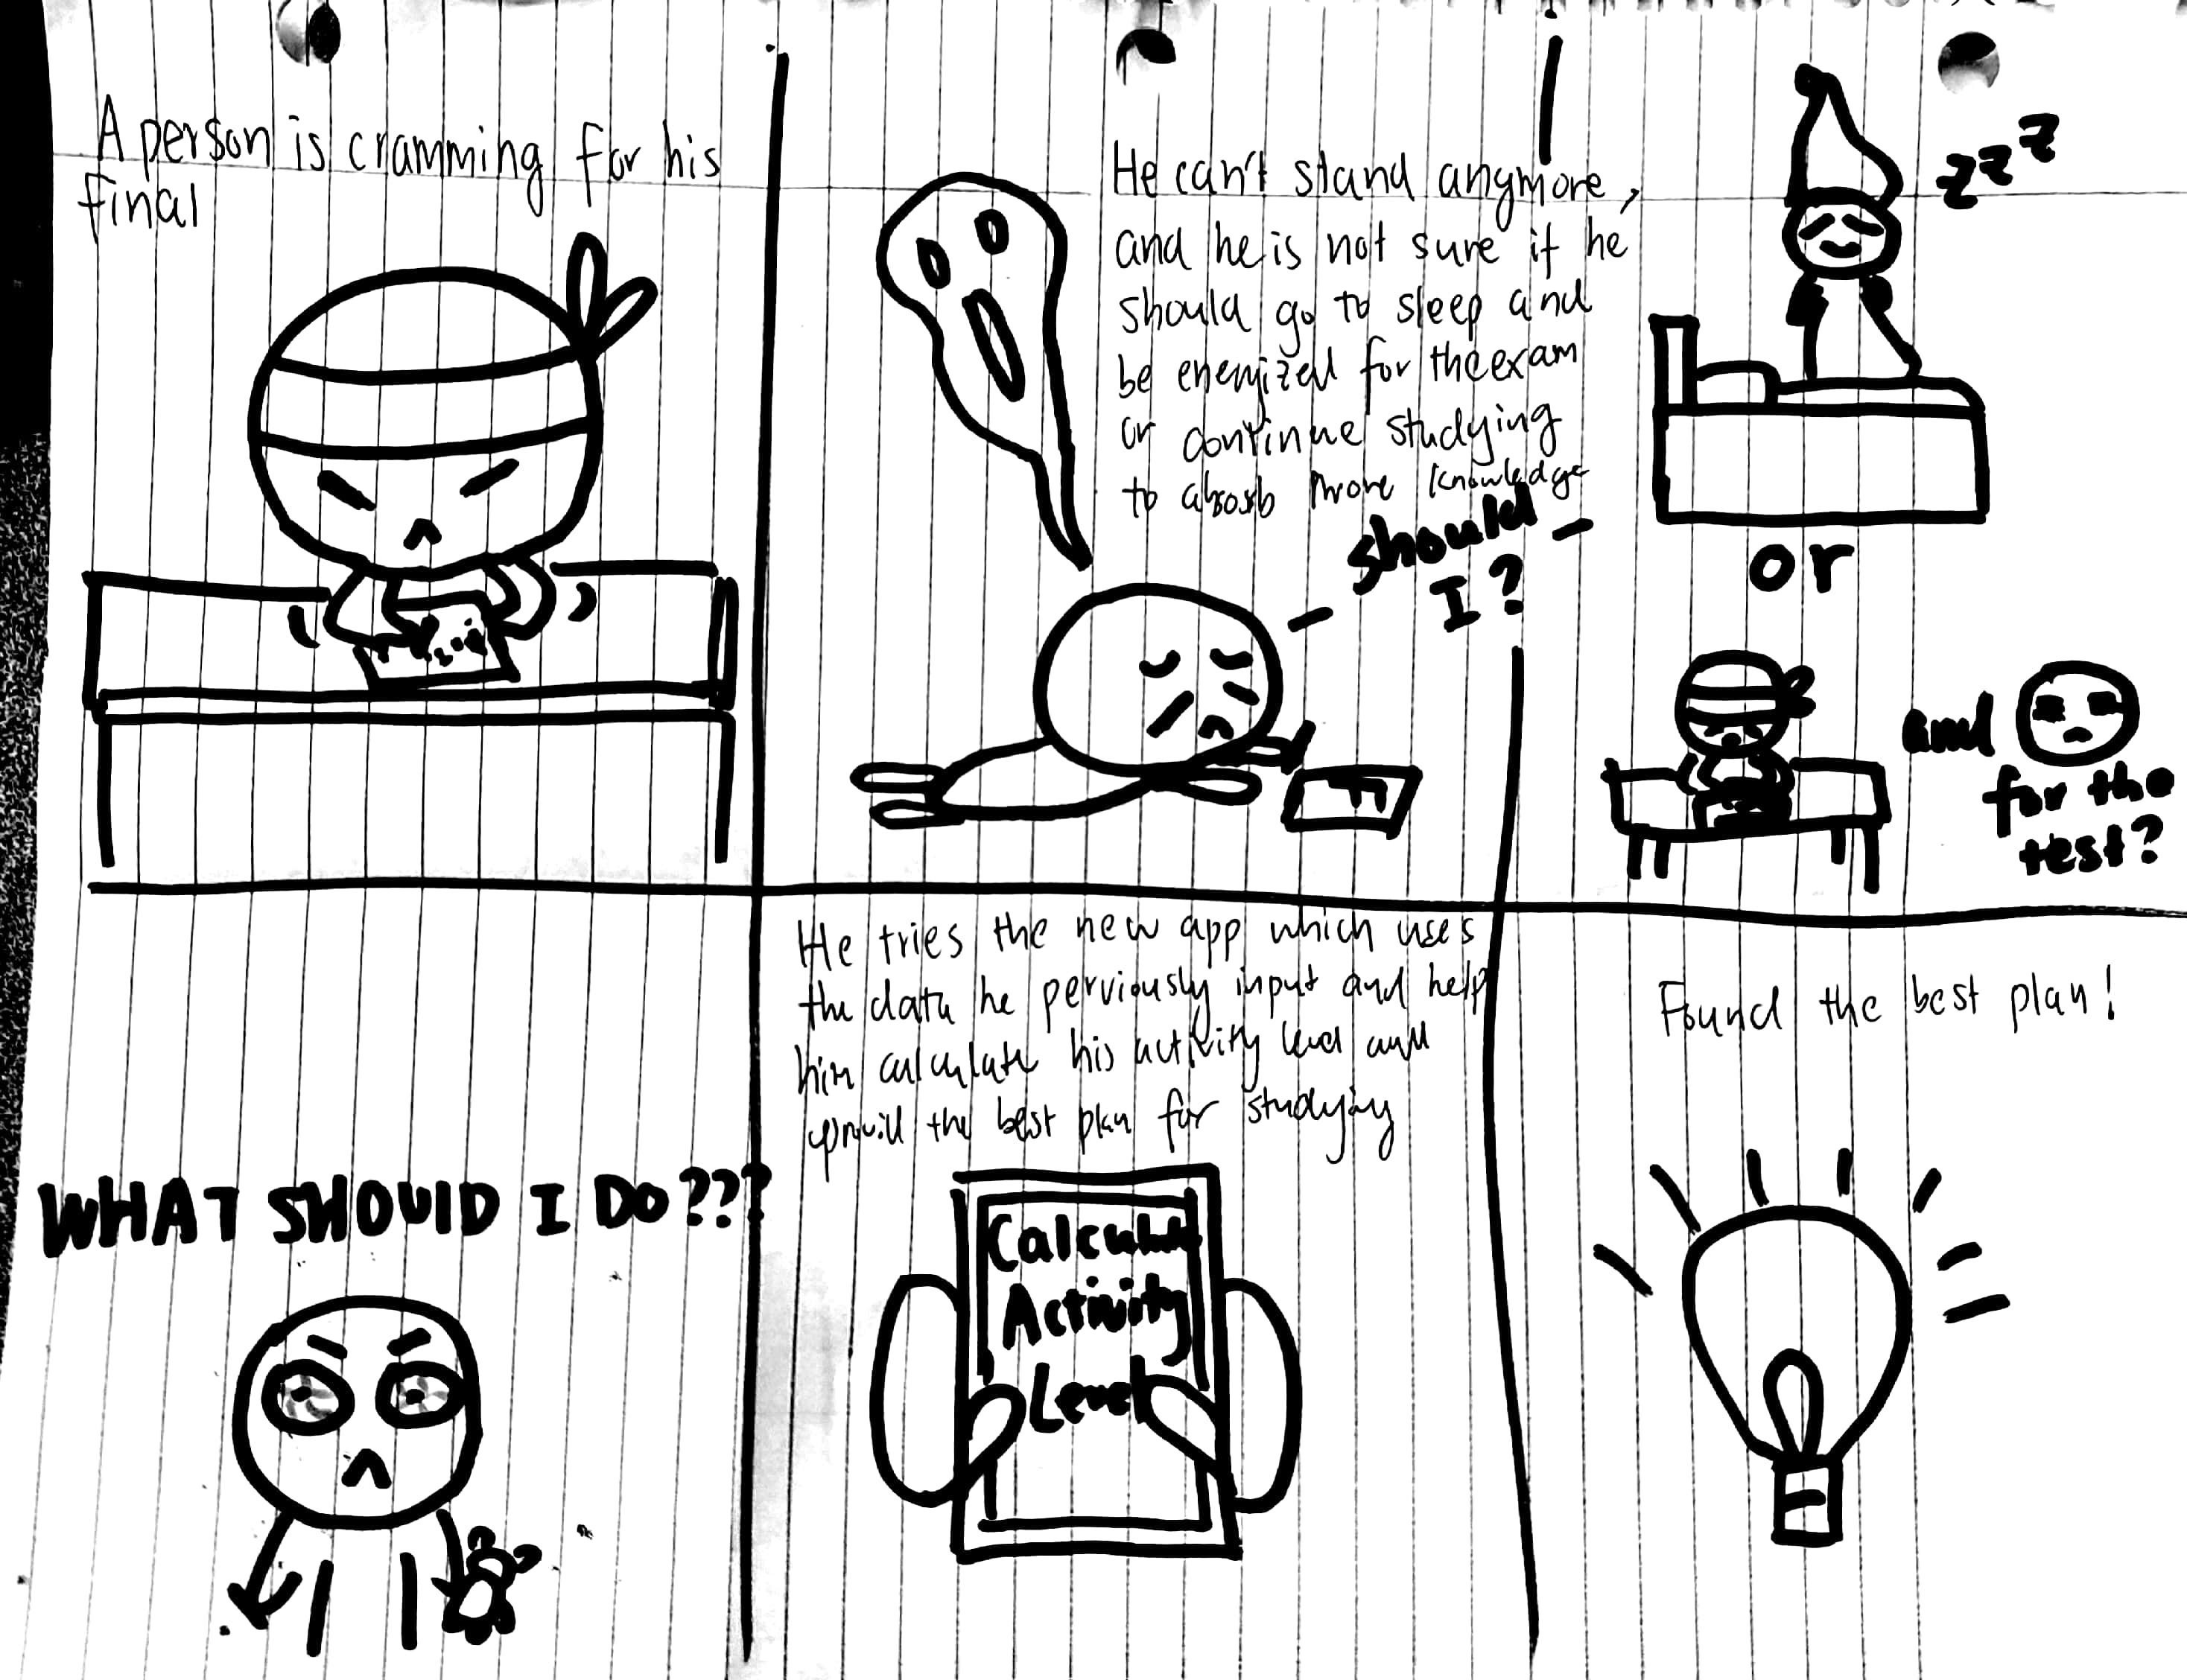 A person is cramming for his
final
He can't stand anymore,
and he is not sure if he
should go to sleep and
be energized for the exam
or continue studying
to absorb more knowledge
should
I?
zzz
or
and
for the
test?
WHAT SHOULD I DO???
He tries the new app which uses
the data he perviously input and help
him calculate his activity level and
the best plan for studying
Calculate
Activity
Level
Found the best plan!